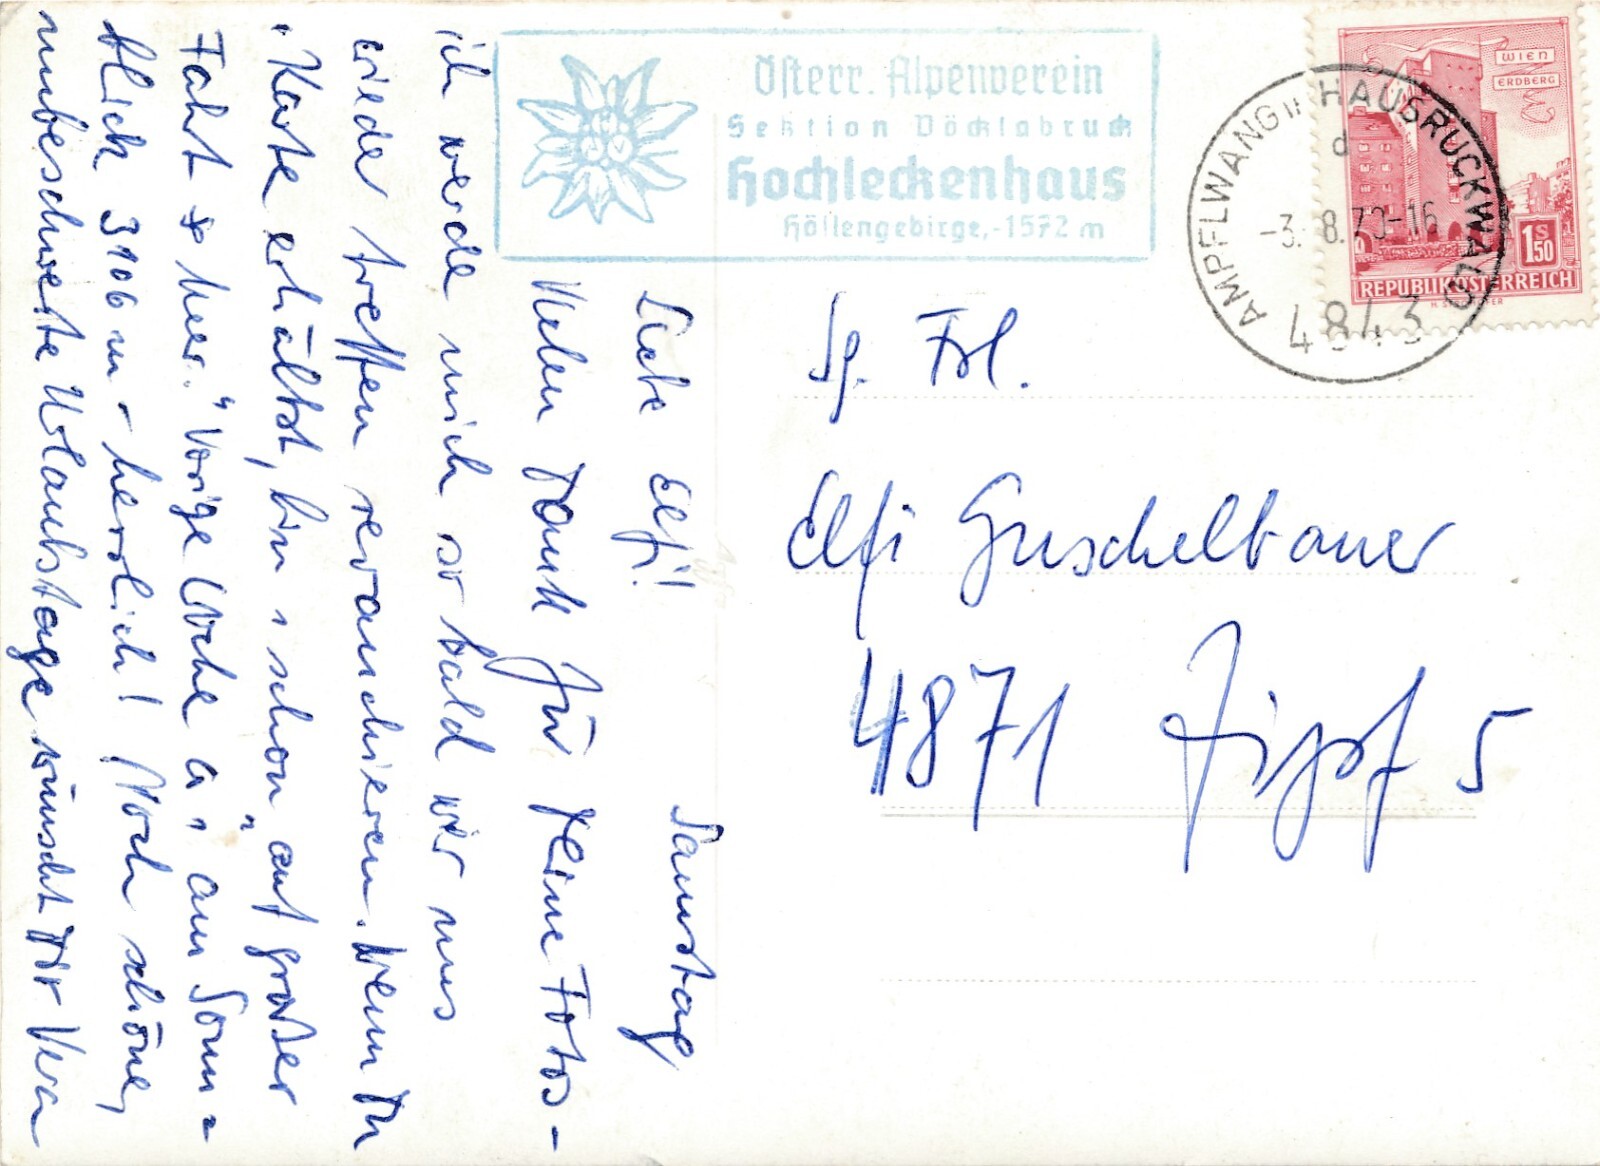 Österr. Alpenverein
Sektion Vöcklabruck
Hochleckenhaus
Höllengebirge,-1572 m
WIEN
ERDBERG
1 S 50
REPUBLIK ÖSTERREICH
AMPFLWANG i. HAUSRUCKWALD
d
-3. 8. 70-16
4843
Samstag
Liebe Elfi!
Vielen Dank für Deine Fotos-
ich werde mich so bald wir uns
wieder treffen revanchieren. Wenn Du
Karte erhältst, bin i schon „auf großer
Fahrt
her." Vorige Woche a, am Sonn=
blick 3106 m - herrlich! Noch schöne,
unbeschwerte Urlaubstage wünscht Dir Vera
Sg. Frl.
Elfi Guschelbauer
4871 Zipf 5